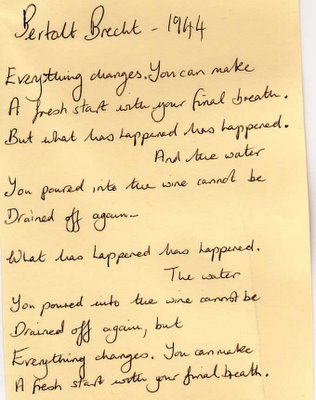 Bertolt Brecht - 1944
Everything changes. You can make
A fresh start with your final breath.
But what has happened has happened.
And the water
You poured into the wine cannot be
Drained off again.
What has happened has happened.
The water
You poured into the wine cannot be
Drained off again, but
Everything changes. You can make
A fresh start with your final breath.